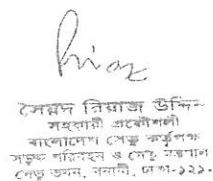 সৈয়দ নিয়াজ উদ্দিন
সহকারী প্রকৌশলী
বাংলাদেশ সেতু কর্তৃপক্ষ
সড়ক পরিবহন ও সেতু মন্ত্রণালয়
সেতু ভবন, বনানী, ঢাকা-১২১